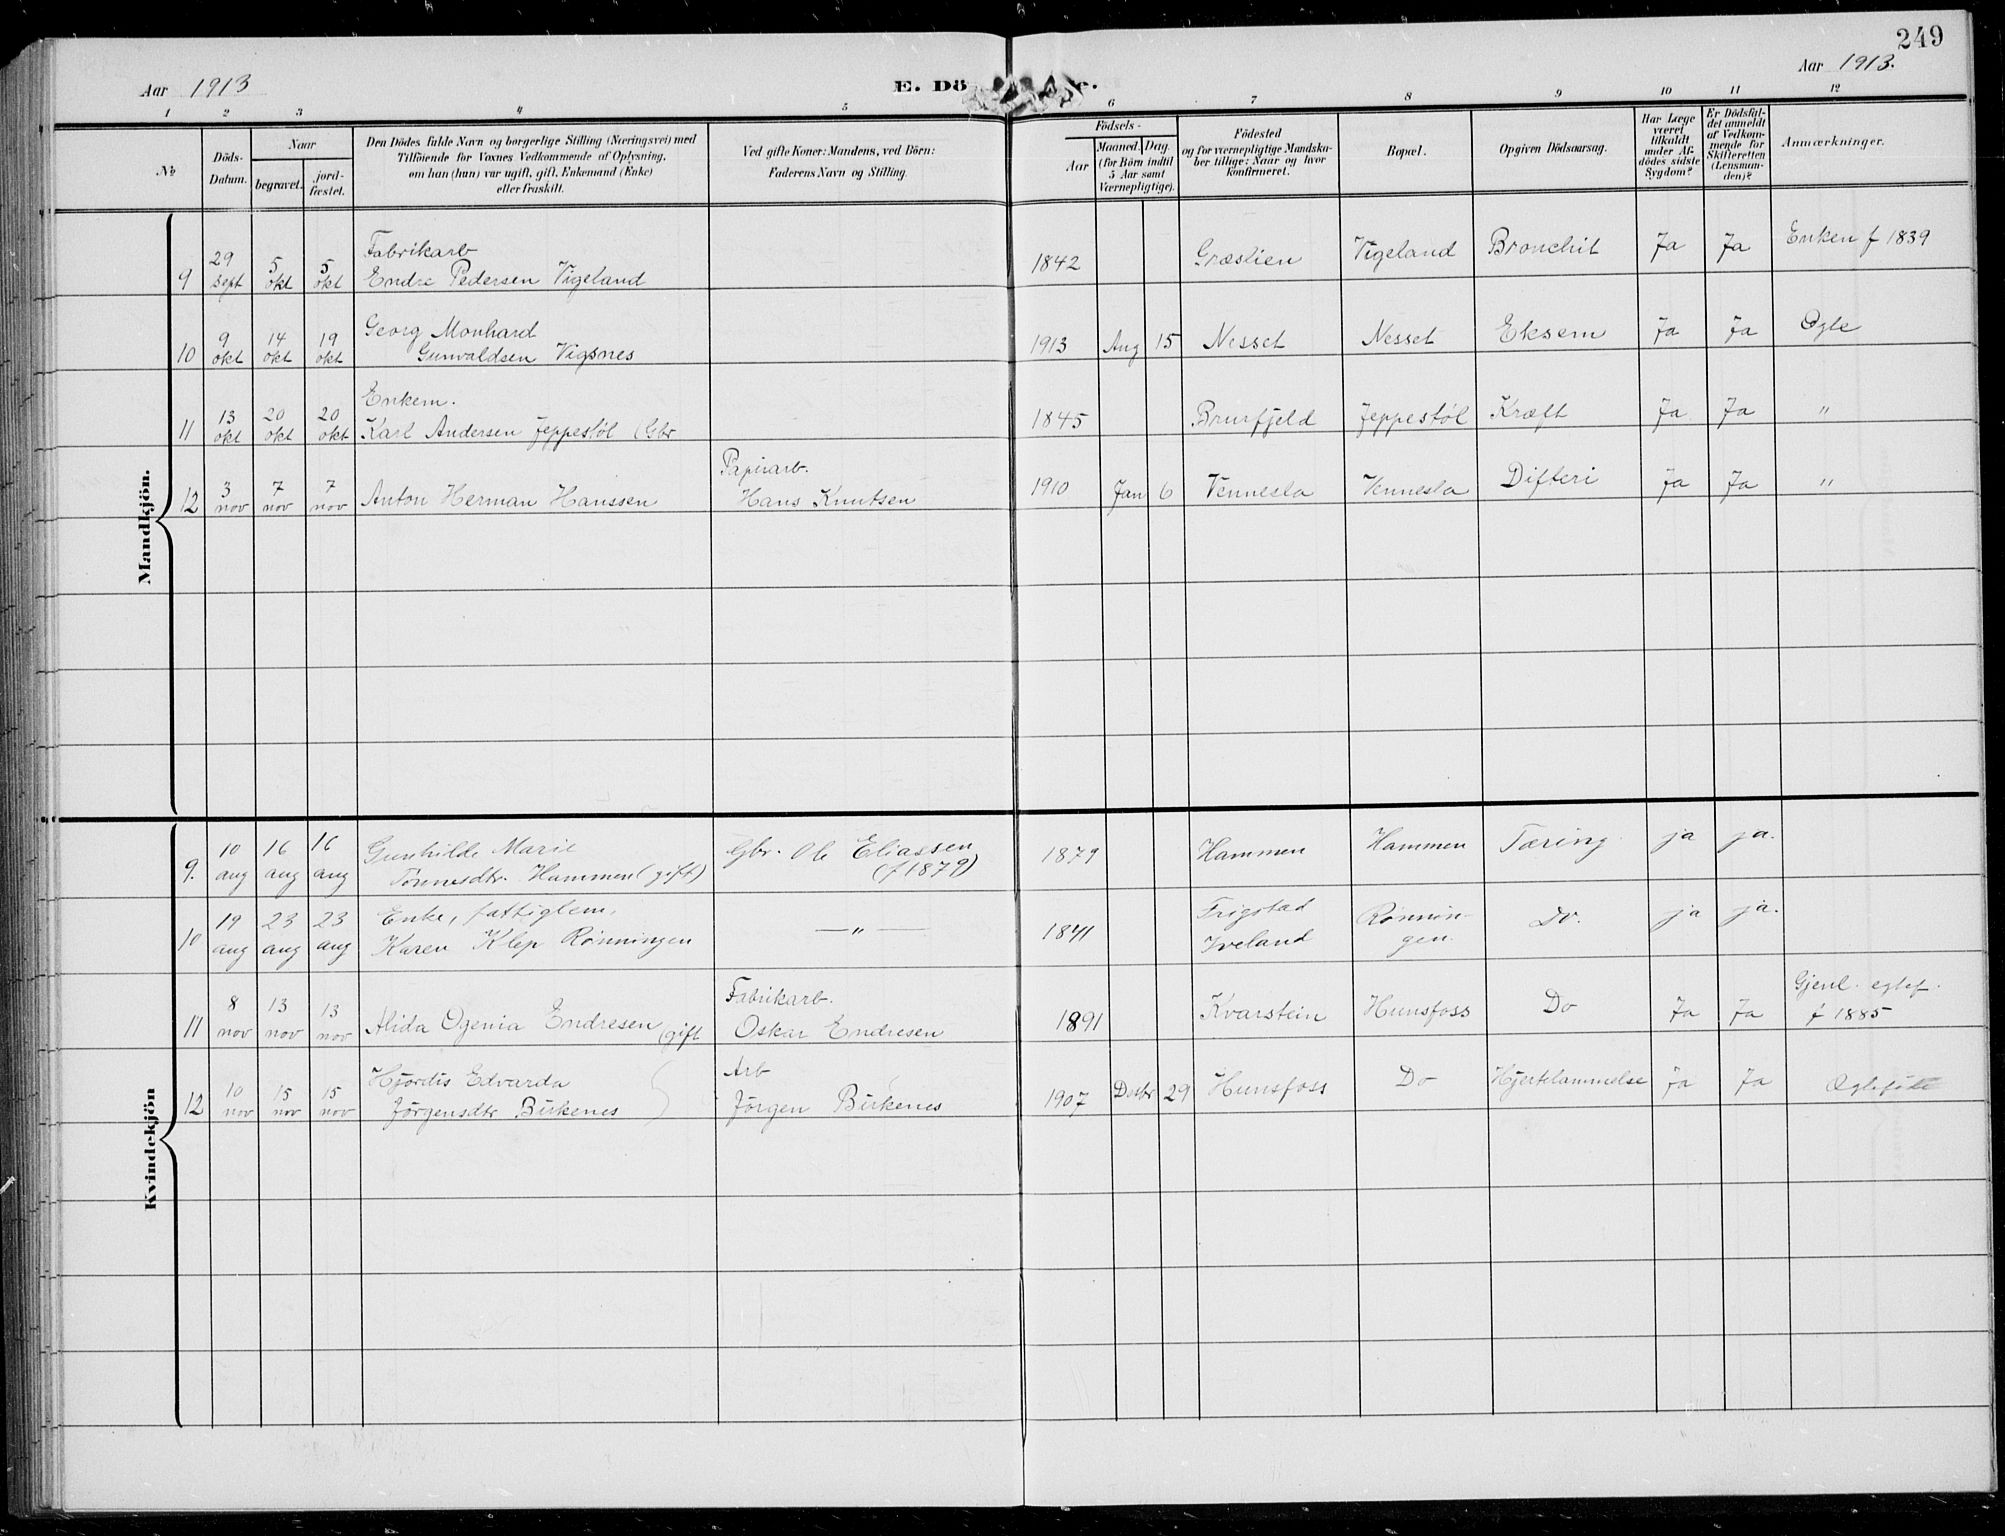 249
Aar 1913
E. Dö
e.
Aar 1913.
1 2 3 4 5 6 7 8 9 10 11 12
№
Döds-
Datum.
Naar
begravet.
jord-
fæstet.
Den Dödes fulde Navn og borgerlige Stilling (Næringsvei) med
Tilföiende for Voxnes Vedkommende af Oplysning,
om han (hun) var ugift, gift, Enkemand (Enke)
eller fraskilt.
Ved gifte Koner: Mandens, ved Börn:
Faderens Navn og Stilling.
Födsels-
Aar
Maaned. Dag.
(for Börn indtil
5 Aar samt
Værnepligtige).
Födested
og for værnepligtige Mandska-
ber tillige: Naar og hvor
konfirmeret.
Bopæl.
Opgiven Dödsaarsag.
Har Læge
været
tilkaldt
under Af-
dödes sidste
Sygdom?
Er Dödsfal-
det anmeldt
af Vedkom-
mende for
Skifteretten
(Lensman-
den)?
Anmærkninger.
Mandkjön.
9 29 sept 5 okt 5 okt Fabrikarb
Endre Pedersen Vigeland 1842 Græslien Vigeland Bronchit Ja Ja Enken f 1839
10 9 okt 14 okt 19 okt Georg Monhard
Gunvaldsen Vigsnes 1913 Aug 15 Nesset Nesset Eksem Ja Ja Ogle
11 13 okt 20 okt 20 okt Enkem.
Karl Andersen Jeppestøl (Gbr 1845 Brurfjeld Jeppestøl Kræft Ja Ja "
12 3 nov 7 nov 7 nov Anton Herman Hanssen Papirarb.
Hans Knutsen 1910 Jan 6 Vennesla Vennesla Difteri Ja Ja "
Kvindekjön
9. 10 aug 16 aug 16 aug Gunhilde Marie
Tønnesdtr. Hammen (gift) Gbr. Ole Eliassen
(f 1879) 1879 Hammen Hammen Tæring ja ja.
10 19 aug 23 aug 23 aug Enke, fattiglem,
Karen Klep Rønningen —"— 1841 Frigstad
Iveland Rønnin-
gen. Do. ja ja.
11 8 nov 13 nov 13 nov Alida Ogenia Endresen (gift Fabrikarb.
Oskar Endresen 1891 Kvarstein Hunsfoss Do Ja Ja Gjenl. egtef.
f 1885
12 10 nov 15 nov 15 nov Hjørdis Edvarda
Jørgensdtr Birkenes Arb
Jørgen Birkenes 1907 Decbr 29 Hunsfoss Do Hjertelammelse Ja Ja Ægtefødt